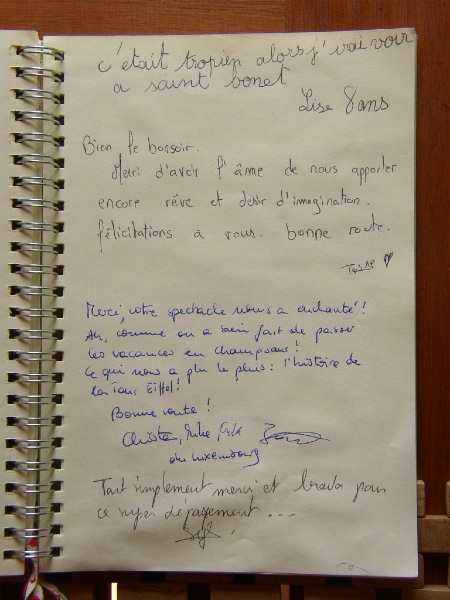 c'était tropien alors j'irai voir
a saint bonet
Lise 8 ans
Bien le bonsoir.
Merci d'avoir l'âme de nous apporter
encore rêve et desir d'imagination.
félicitations à vous. bonne route.
Merci, votre spectacle nous a enchanté!
Ah, comme on a bien fait de passer
les vacances en Champsaur!
Ce qui nous a plu le plus: l'histoire de
la Tour Eiffel!
Bonne route!
du Luxembourg
Tout simplement merci et bravo pour
ce super dépaysement...